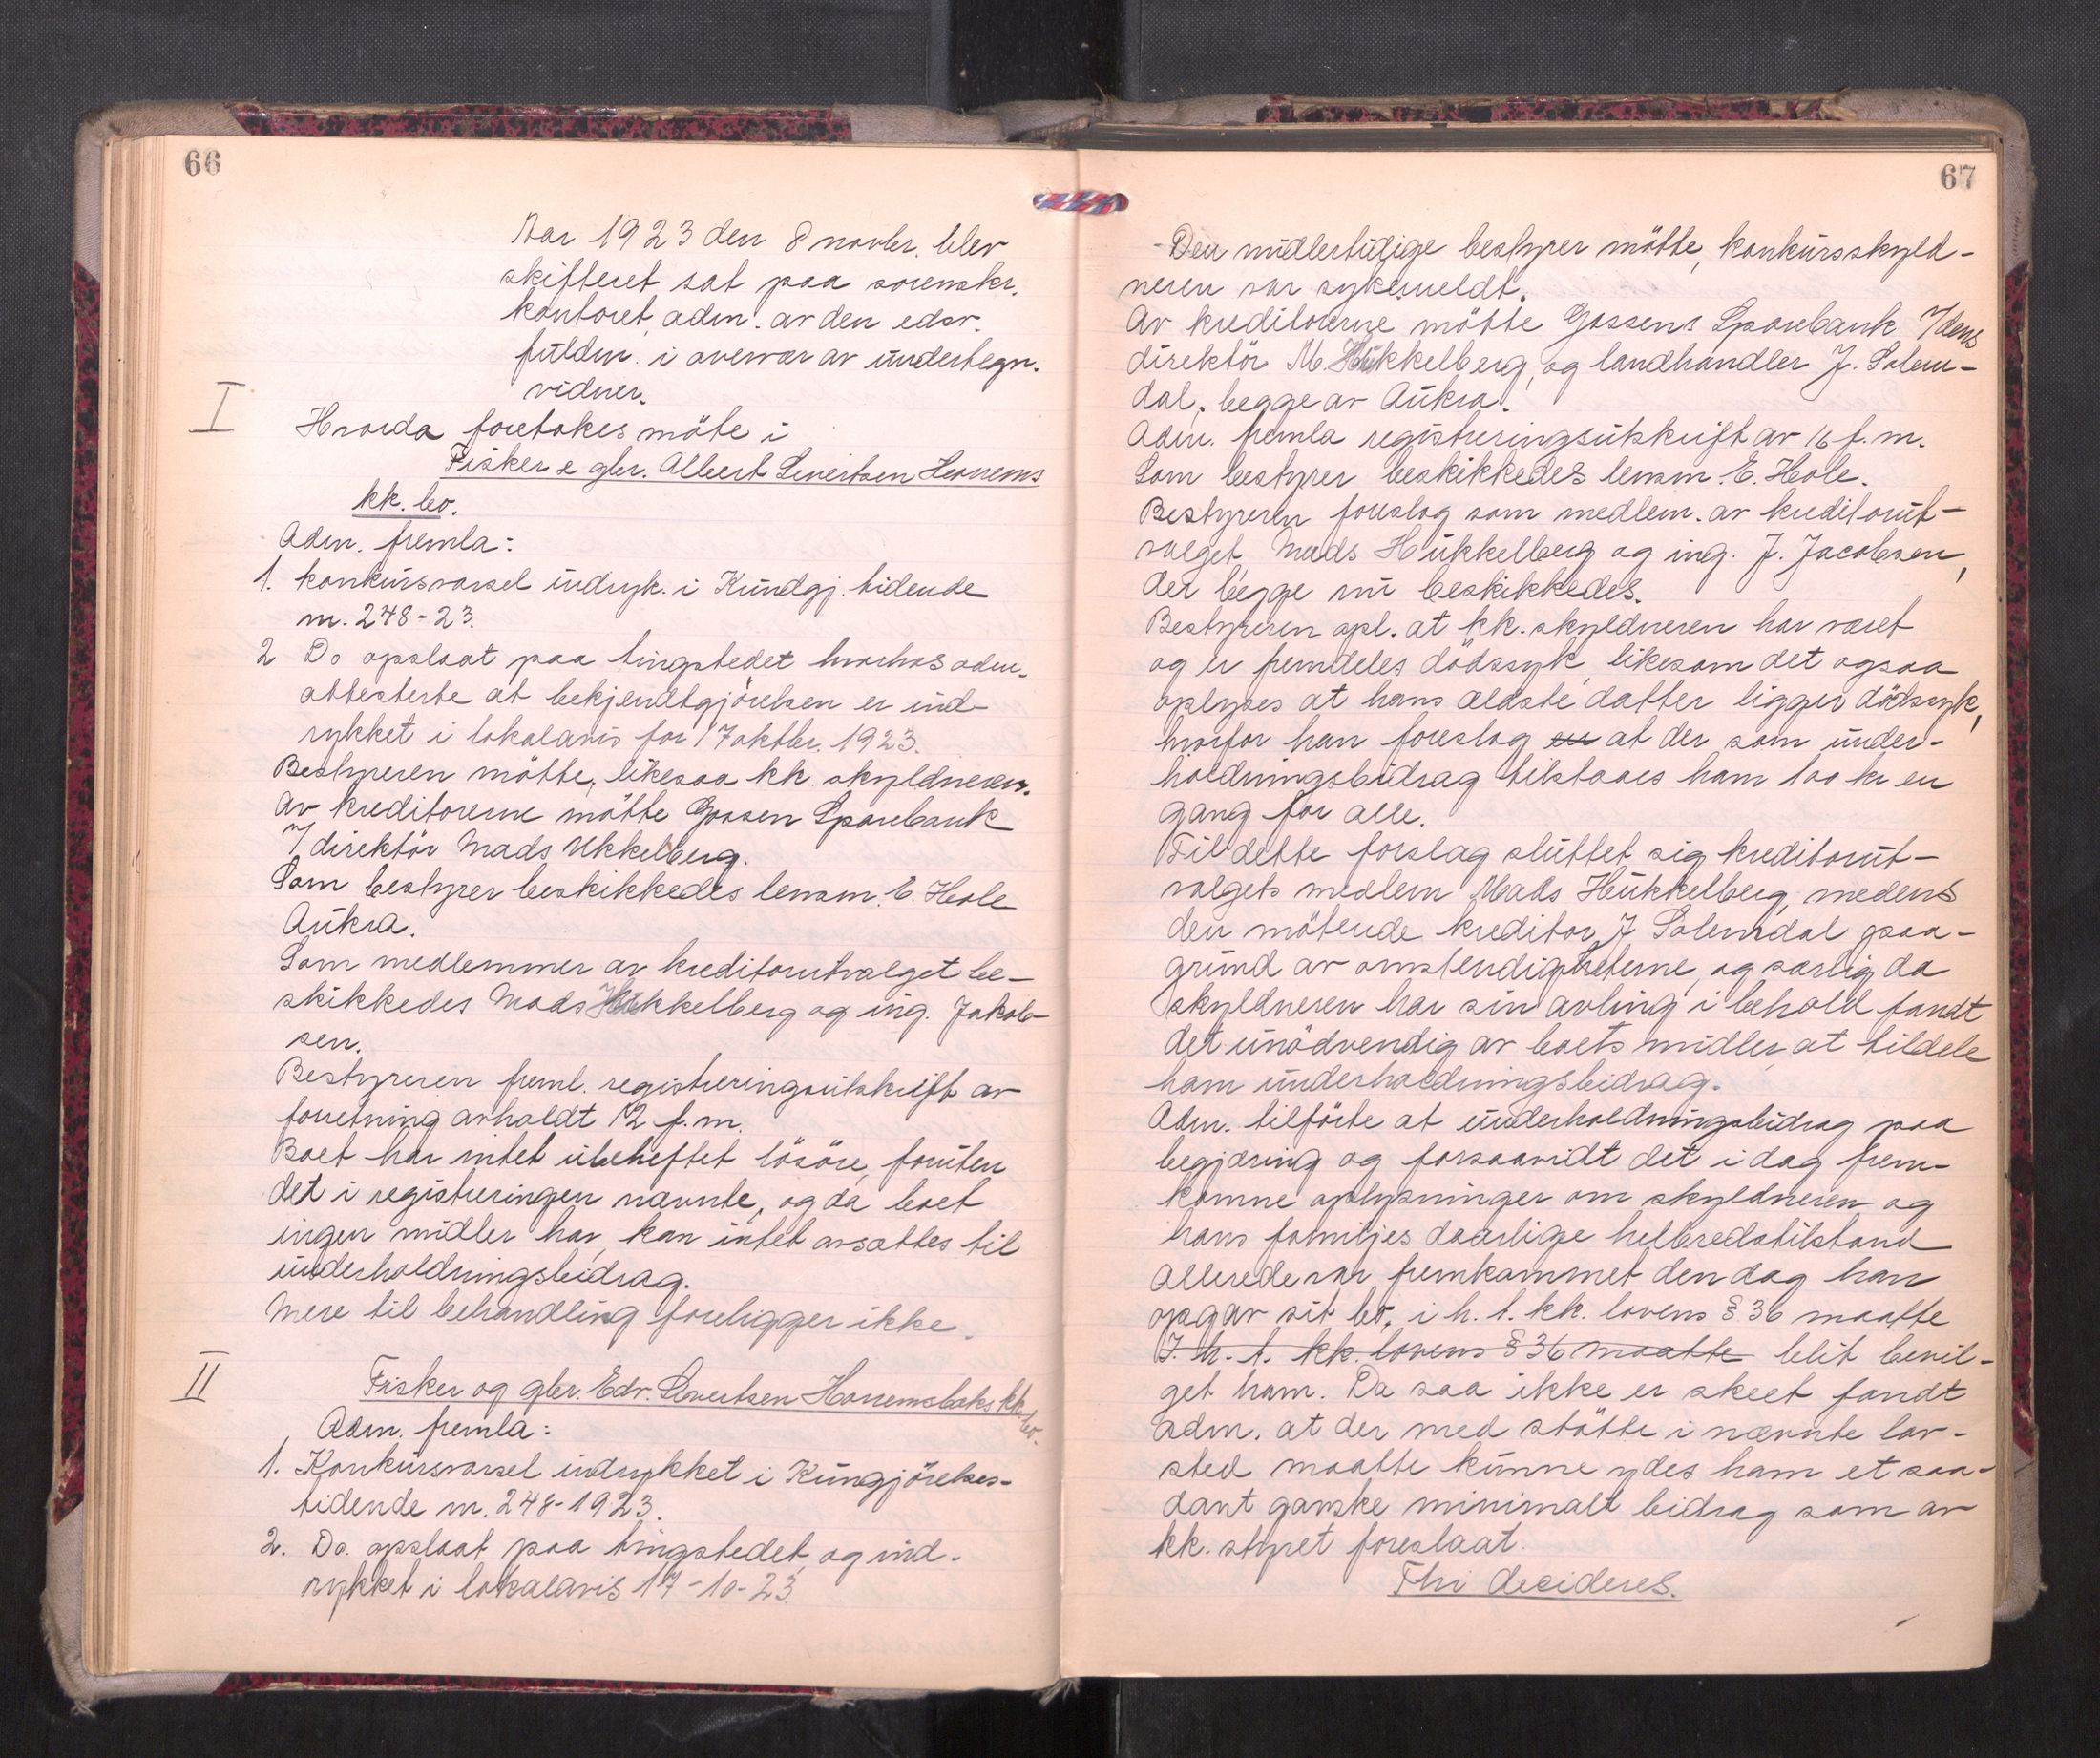 66
Aar 1923 den 8 novbr. blev
skifteret sat paa sorenskr.
kontoret, adm. av den edsv.
fuldm. i overvær av undertegn.
vidner.
I
Hvorda foretokes möte i
Fisker & gbr. Albert Sivertsen
kk. bo.
Adm. fremla:
1. konkursvarsel indryk. i Kundgj. tidende
nr. 248-23.
2 Do opslaat paa tingstedet hvorhos adm.
attesterte at bekjendtgjörelsen er ind-
rykket i lokalavis for 17 oktbr. 1923.
Bestyreren mötte, likesaa kk. skyldneren.
Av kreditorerne mötte Gossen Sparebank
v/ direktör Mads Ukkelberg.
Som bestyrer beskikkedes lensm. E. Hole
Aukra.
Som medlemmer av kreditorutvalget be-
skikkedes Mads Hukkelberg og ing. Jakob-
sen.
Bestyreren freml. registreringsutskrift av
forretning avholdt 12 f.m.
Boet har intet ubeheftet lösöre, foruten
det i registreringen nævnte, og da boet
ingen midler har, kan intet avsættes til
underholdningsbidrag.
Mere til behandling foreligger ikke.
II
Fisker og gbr. Edv. Sivertsen Horremsbaks kk.
bo.
Adm. fremla:
1. Konkursvarsel indrykket i Kungjörelses-
tidende nr. 248-1923.
2. Do. opslaat paa tingstedet og ind-
rykket i lokalavis 17-10-23.
67
- Den midlertidige bestyrer mötte, konkursskyld-
neren var sykemeldt.
Av kreditorerne mötte Gossens Sparebank v/dens
direktör M. Hukkelberg, og landhandler J. Solem-
dal, begge av Aukra.
Adm. fremla registreringsutskrift av 16 f.m.
Som bestyrer beskikkedes lensm. E. Hole.
Bestyreren foreslog som medlem. av kreditorut-
valget Mads Hukkelberg og ing. J. Jacobsen,
der begge nu beskikkedes.
Bestyreren opl. at kk. skyldneren har været
og er fremdeles dödssyk, likesom det ogsaa
oplyses at hans ældste datter ligger dödssyk,
hvorfor han foreslog en at der som under-
holdningsbidrag tilstaaes ham 100 kr en
gang for alle.
Til dette forslag sluttet sig kreditorut-
valgets medlem Mads Hukkelberg, medens
den mötende kreditor J Solemdal paa-
grund av omstendigheterne, og særlig da
skyldneren har sin avling i behold fandt
det unödvendig av boets midler at tildele
ham underholdningsbidrag.
Adm. tilförte at underholdningsbidrag paa
begjæring og forsaavidt det idag frem-
komne oplysninger om skyldneren og
hans familjes daarlige helbredstilstand
allerede var fremkommet den dag han
opgav sit bo, i h. t. kk. lovens § 36 maatte
I. h. t. kk. lovens § 36 maatte blit bevil-
get ham. Da saa ikke er skeet fandt
adm. at der med stötte i nævnte lov-
sted maatte kunne ydes ham et saa-
dant ganske minimalt bidrag som av
kk. styret foreslaat.
Thi decideres.